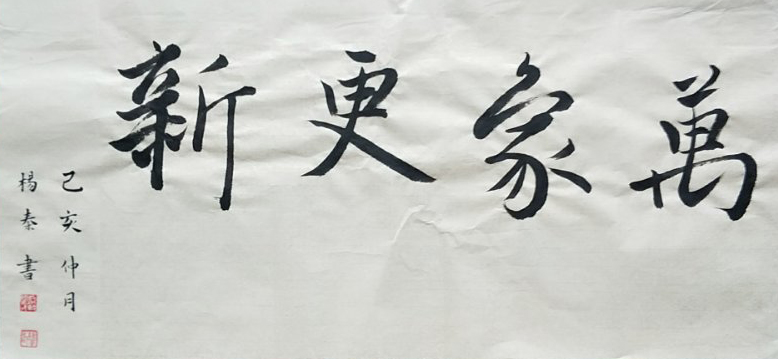 萬象更新
己亥仲月
楊秦書